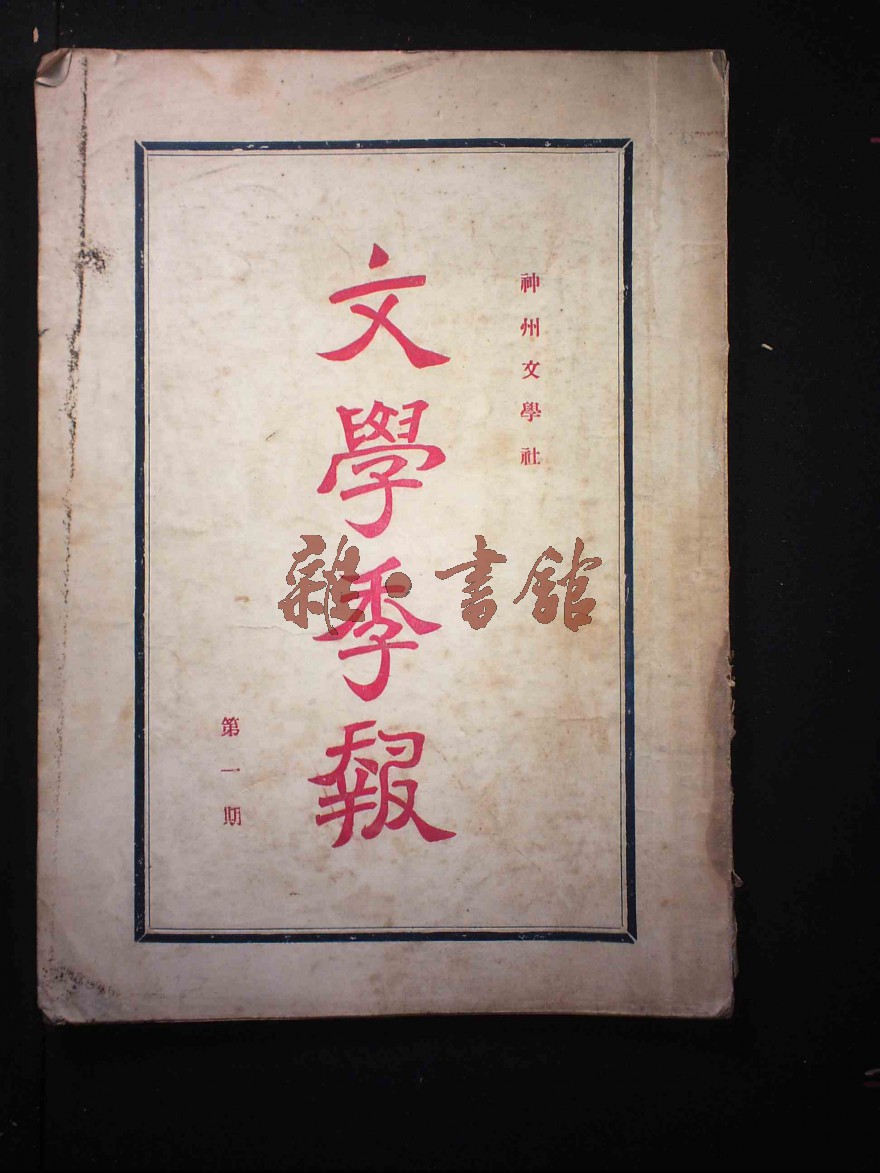 神州文學社
文學季報
第一期
雜·書館